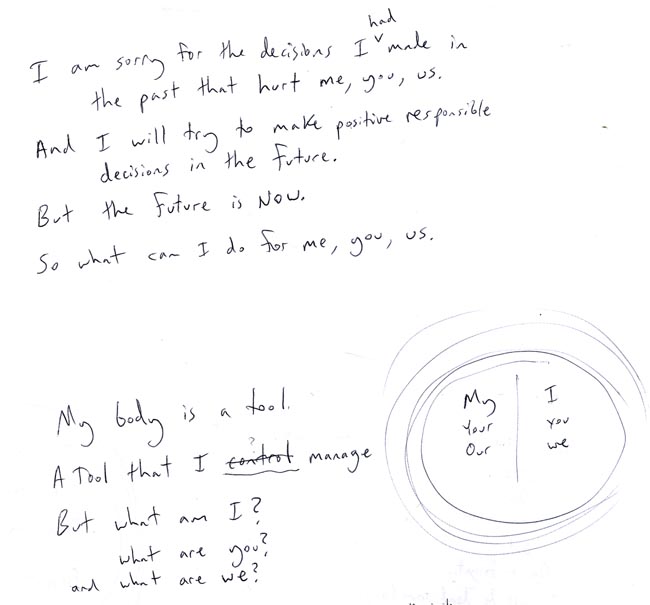 I am sorry for the decisions I had made in
the past that hurt me, you, us.
And I will try to make positive responsible
decisions in the future.
But the future is Now.
So what can I do for me, you, us.
My body is a tool.
A Tool that I control manage
But what am I?
what are you?
and what are we?
My I
Your you
Our we